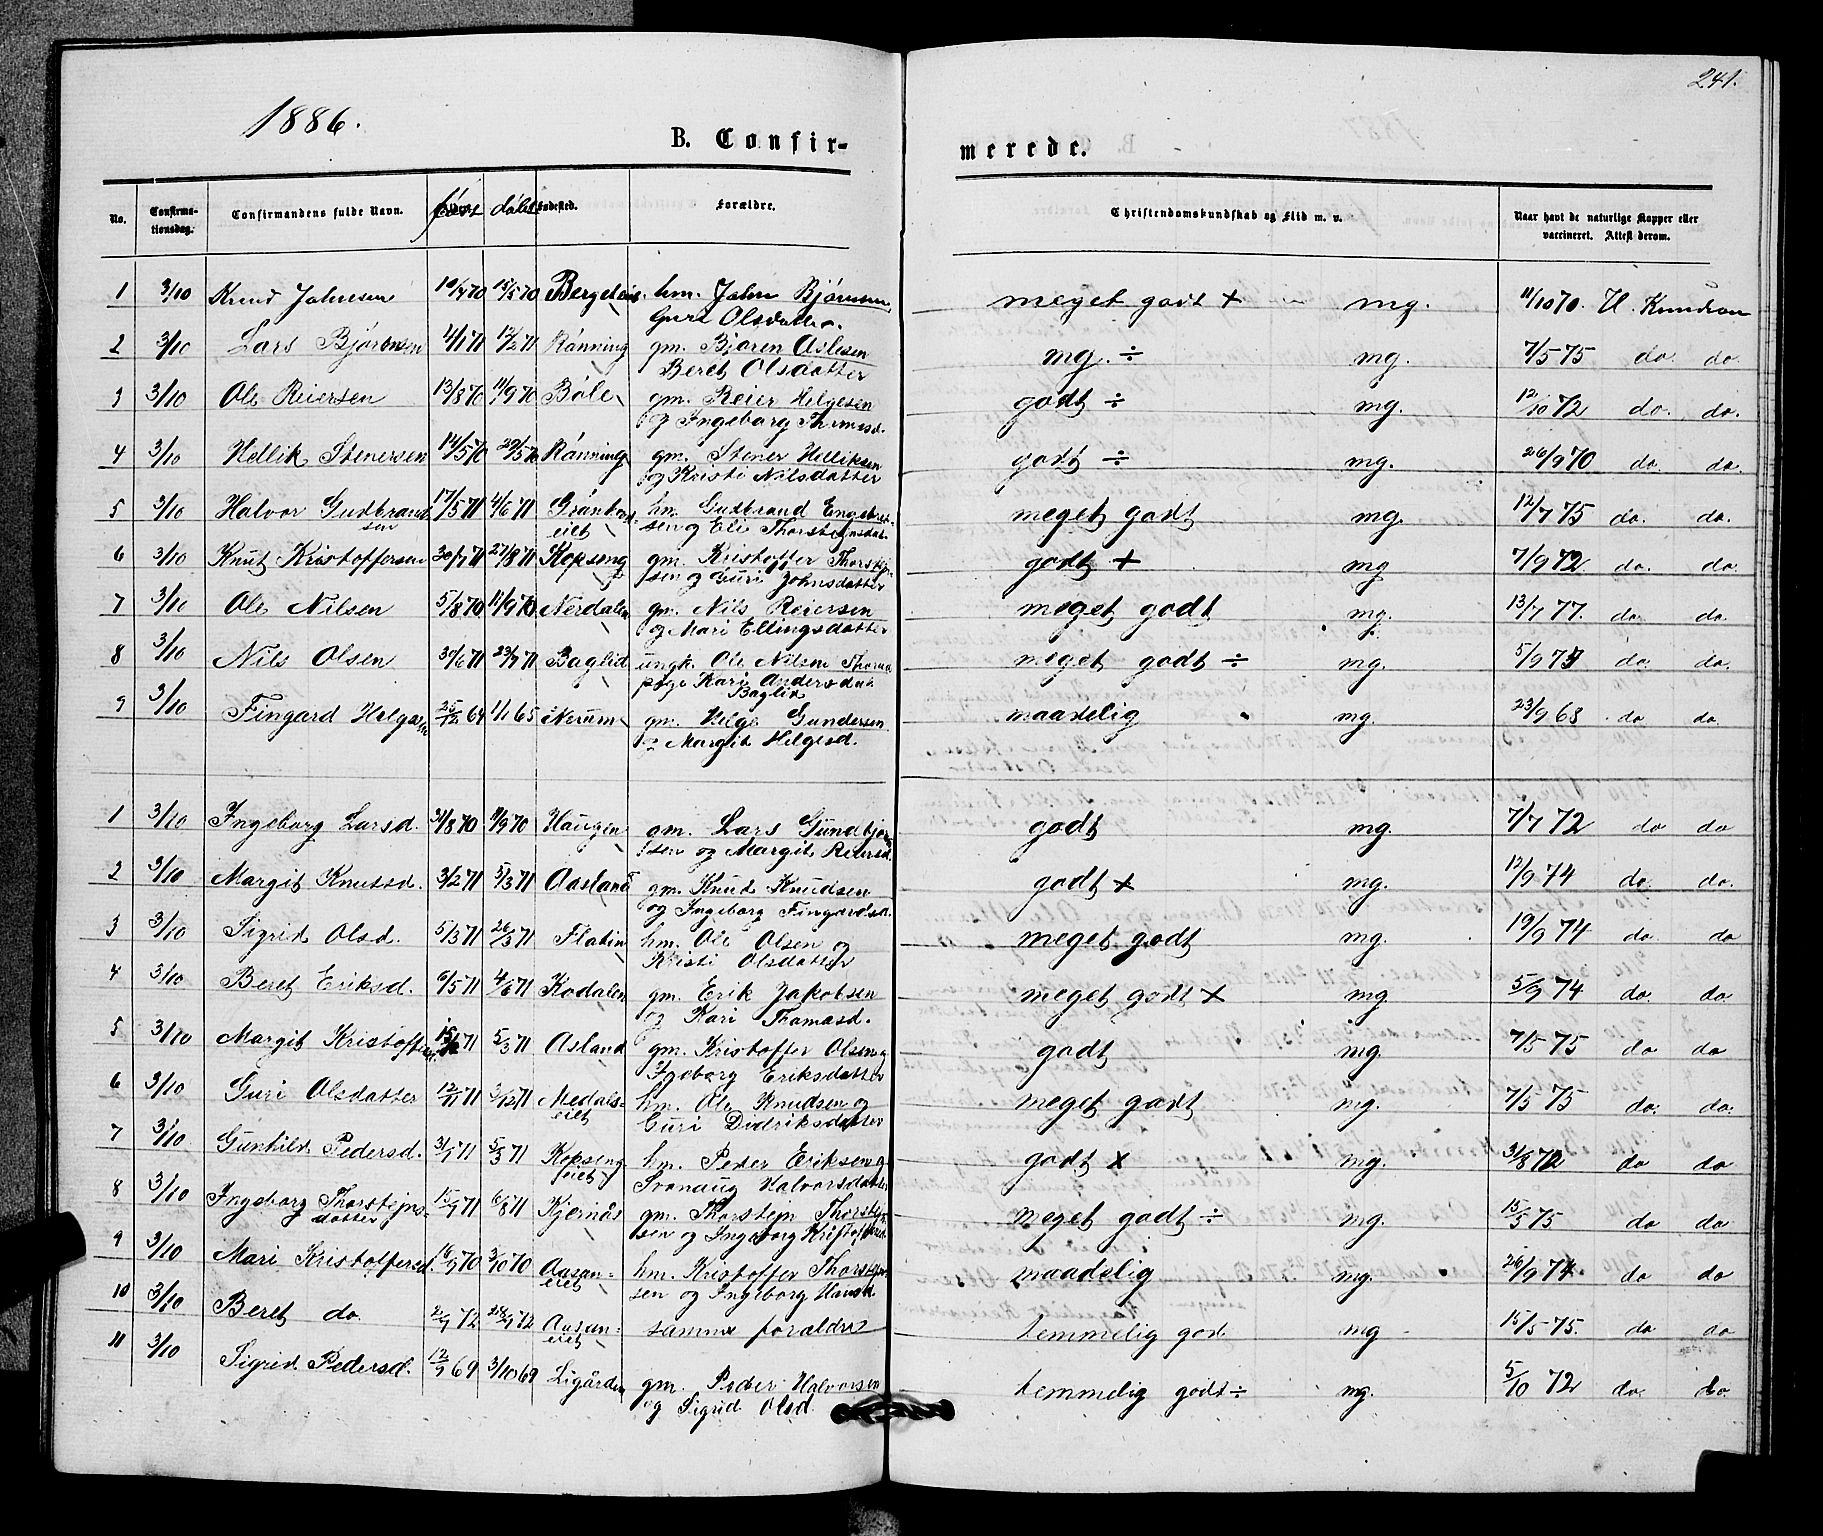 241.
1886.
B. Confir-
merede.
No. Confirma-tionsdag. Confirmandens fulde Navn. født døbt Fødested. Forældre. Christendomskundskab og Flid m. v. Naar havt de naturlige Kopper eller vaccineret. Attest derom.
1 3/10 Knud Johnsen 15/5 70 hm. John Bjørnsen meget godt + mg. 11/10 70. Knudsen
Guri Olsdatter
2 3/10 Lars Bjørensen 4/1 71 12/2 71 Rønning gm. Bjøren Aslesen mg. ÷ mg. 7/5 75 do do.
Beret Olsdatter
3 3/10 Ole Reiersen 13/8 70 11/9 70 Bøle gm. Reier Helgesen godt ÷ mg. 12/10 72 do. do.
og Ingeborg Thomasd.
4 3/10 Hellik Stenersen 14/5 70 29/5 70 Rønning gm. Stener Helliksen godt ÷ mg. 26/9 70 do. do.
og Kristi Nilsdatter
5 3/10 Halvor Gudbrand- 17/5 71 4/6 71 hm. Gudbrand Engebret- meget godt mg. 12/7 75 do. do.
sen eiet sen og Eli Thorstejnsdat.
6 3/10 Knut Kristoffersen 30/7 71 27/8 71 Kopseng gm. Kristoffer Thorstej- godt + mg 7/9 72. do. do.
sen og Guri Johnsdatter
7 3/10 Ole Nilsen 5/8 70 11/9 70 Nerdalen gm. Nils Reiersen meget godt mg. 13/7 77. do. do.
og Mari Ellingsdatter
8 3/10 Nils Olsen 30/6 71 23/7 71 Baglid ungk. Ole Nilsen meget godt ÷ mg. 5/9 73 do. do.
pige Kari Andersdat.
Baglid
9 3/10 Fingard Helgesen 25/12 64 1/1 65 Nerum gm. Helge Gundersen maadelig mg. 23/9 68 do do.
og Margit Helgesd.
1 3/10 Ingeborg Larsd. 31/8 70 11/9 70 Haugen gm. Lars Gundbjørn godt mg. 7/7 72 do do
sen og Margit Reiersd.
2 3/10 Margit Knutsd. 3/2 71 5/3 71 Aasland gm. Knud Knudsen godt + mg. 12/9 74 do. do.
og Ingeborg Fingardsd.
3 3/10 Sigrid Olsd. 5/3 71 26/3 71 Flatin hm. Ole Olsen og meget godt mg. 19/9 74 do. do
Kristi Olsdatter
4 3/10 Beret Eriksd. 6/5 71 4/6 71 Kodalen gm. Erik Jakobsen meget godt + mg 5/9 74 do. do.
og Kari Thomasd.
5 3/10 Margit Kristoffersd. 5/3 71 Asland gm. Kristoffer Olsen og godt mg. 7/5 75 do do
Ingeborg Eriksdatter
6 3/10 Guri Olsdatter 12/11 71 3/12 71 Medals- hm. Ole Knudsen og meget godt mg. 7/5 75 do. do.
eiet Guri Didriksdatter
7 3/10 Gunhild Pedersd. 31/1 71 5/3 71 Kopseng hm. Peder Eriksen og godt + mg. 31/8 72 do do
eiet Svonaug Halvorsdatter
8 3/10 Ingeborg Thorstejns- 15/7 71 6/8 71 Kjernås gm. Thorstejn Thorstejn meget godt ÷ mg. 15/5 75 do do
datter sen og Ingeborg Kristoffersd.
9 3/10 Mari Kristoffersd. 16/9 70 3/10 70 Aasan- hm. Kristoffer Thorstejn maadelig mg. 26/9 74 do do
eiet sen og Ingeborg Hansd.
10 3/10 Beret do. 2/7 72 28/7 72 Aasan- samme forældre temmelig god mg 15/5 75. do do
eiet
11 3/10 Sigrid Pedersd. 12/9 69 3/10 69 Ligården gm. Peder Halvorsen temmelig godt ÷ mg. 5/10 72 do. do
og Sigrid Olsd.